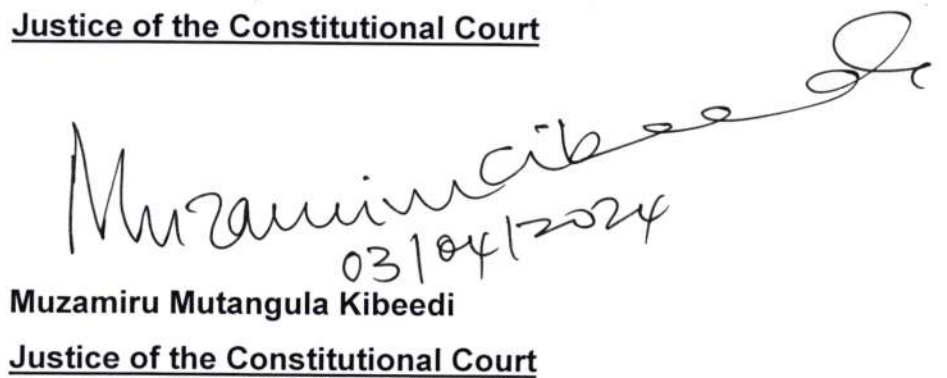 Justice of the Constitutional Court
Muzamiru Kibeedi
03/04/2024
Muzamiru Mutangula Kibeedi
Justice of the Constitutional Court